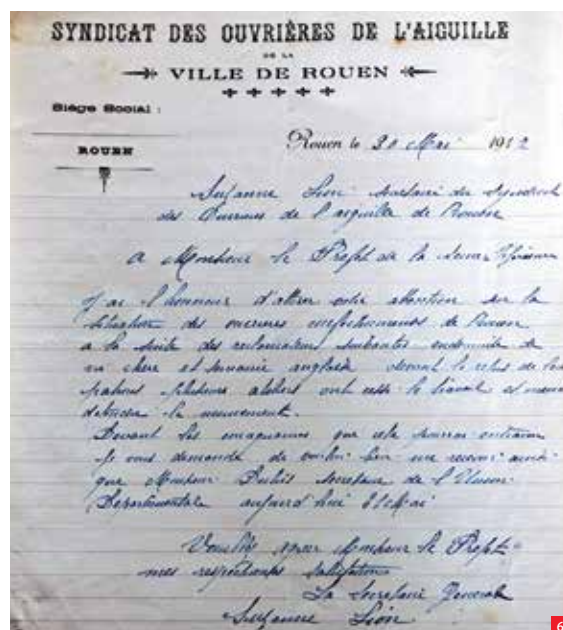 SYNDICAT DES OUVRIÈRES DE L'AIGUILLE
DE LA
VILLE DE ROUEN
Siège Social :
ROUEN
Rouen le 30 Mai 1912
Suzanne Lion du Syndicat
des de l'aiguille de Rouen
A Monsieur le Préfet de la Seine
J'ai l'honneur d'attirer votre attention sur la
situation des ouvrières de Rouen
à la suite des suivantes indemnité de
vie chère et semaine anglaise devant le refus de
patrons plusieurs ateliers ont le travail et
le mouvement.
Devant les que cela pourrai
Je vous demande de bien me recevoir ainsi
que Monsieur secrétaire de l'Union
Départementale aujourd'hui 31 Mai
Monsieur le Préfet
mes respectueuses salutations
La Secrétaire Générale
Suzanne Lion
6